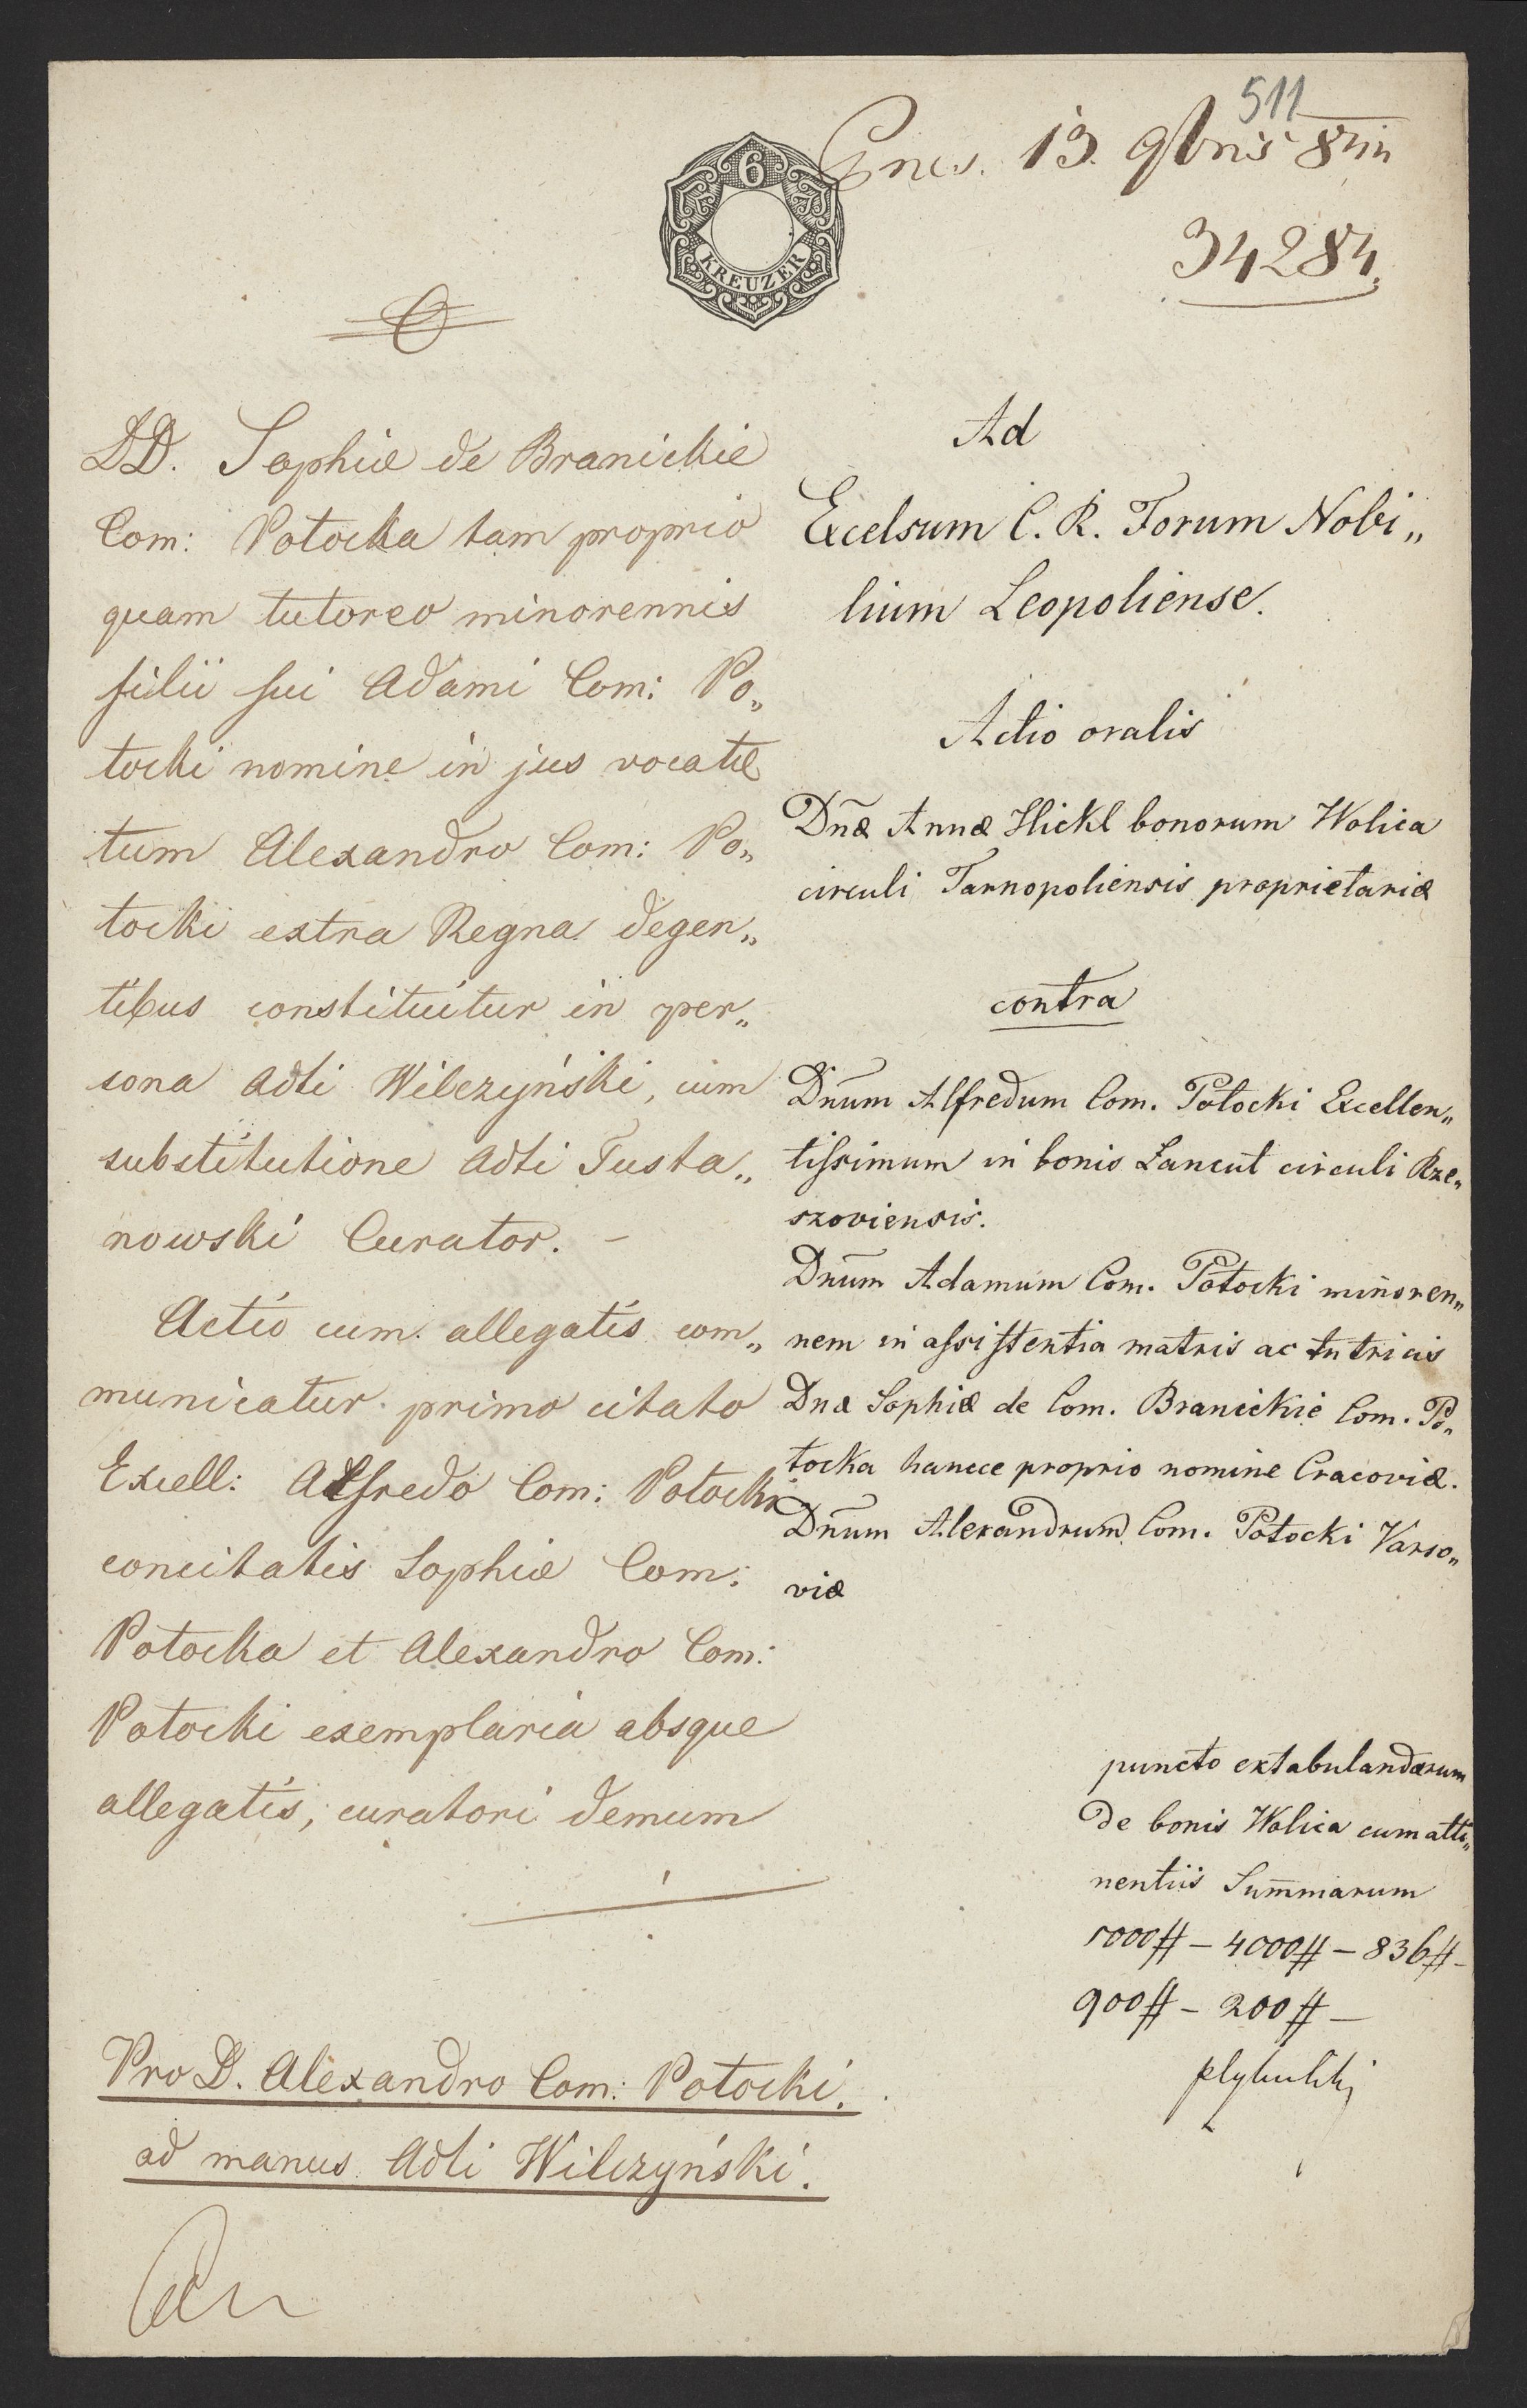 511
13. 9bris
34284.
6
KREUZER
DD. Sophiæ de Branickie
Com: Potocka tam proprio
quam tutoreo minorennis
filii sui Adami Com: Po„
tocki nomine in jus vocatæ
tum Alexandro Com: Po„
tocki extra Regna degen„
tibus constituitur in per„
sona Adti Wilczyński, cum
substitutione Adti Tusta„
nowski Curator. –
Actio cum allegatis com„
municatur primo citato
Excell: Alfredo Com: Potocki
concitatis Sophiæ Com:
Potocka et Alexandro Com:
Potocki exemplaria absque
allegatis, curatori demum
Pro D. Alexandro Com: Potocki.
ad manus Adti Wilczyński.
Ad
Excelsum C. R. Forum Nobi„
lium Leopoliense.
Actio oralis
Dnæ Annæ Hickl bonorum Wolica
circuli Tarnopoliensis proprietariæ
contra
Dnum Alfredum Com. Potocki Excellen„
tissimum in bonis Lancut circuli Rze„
szoviensis.
Dnum Adamum Com. Potocki minoren„
nem in assistentia matris ac tutricis
Dnæ Sophiæ de Com. Branickie Com. Po„
tocka hancce proprio nomine Cracoviæ.
Dnum Alexandrum Com. Potocki Varso„
viæ
puncto extabulandarum
de bonis Wolica cum atti„
nentiis Summarum
1000# – 4000# – 836# –
900# – 200# –